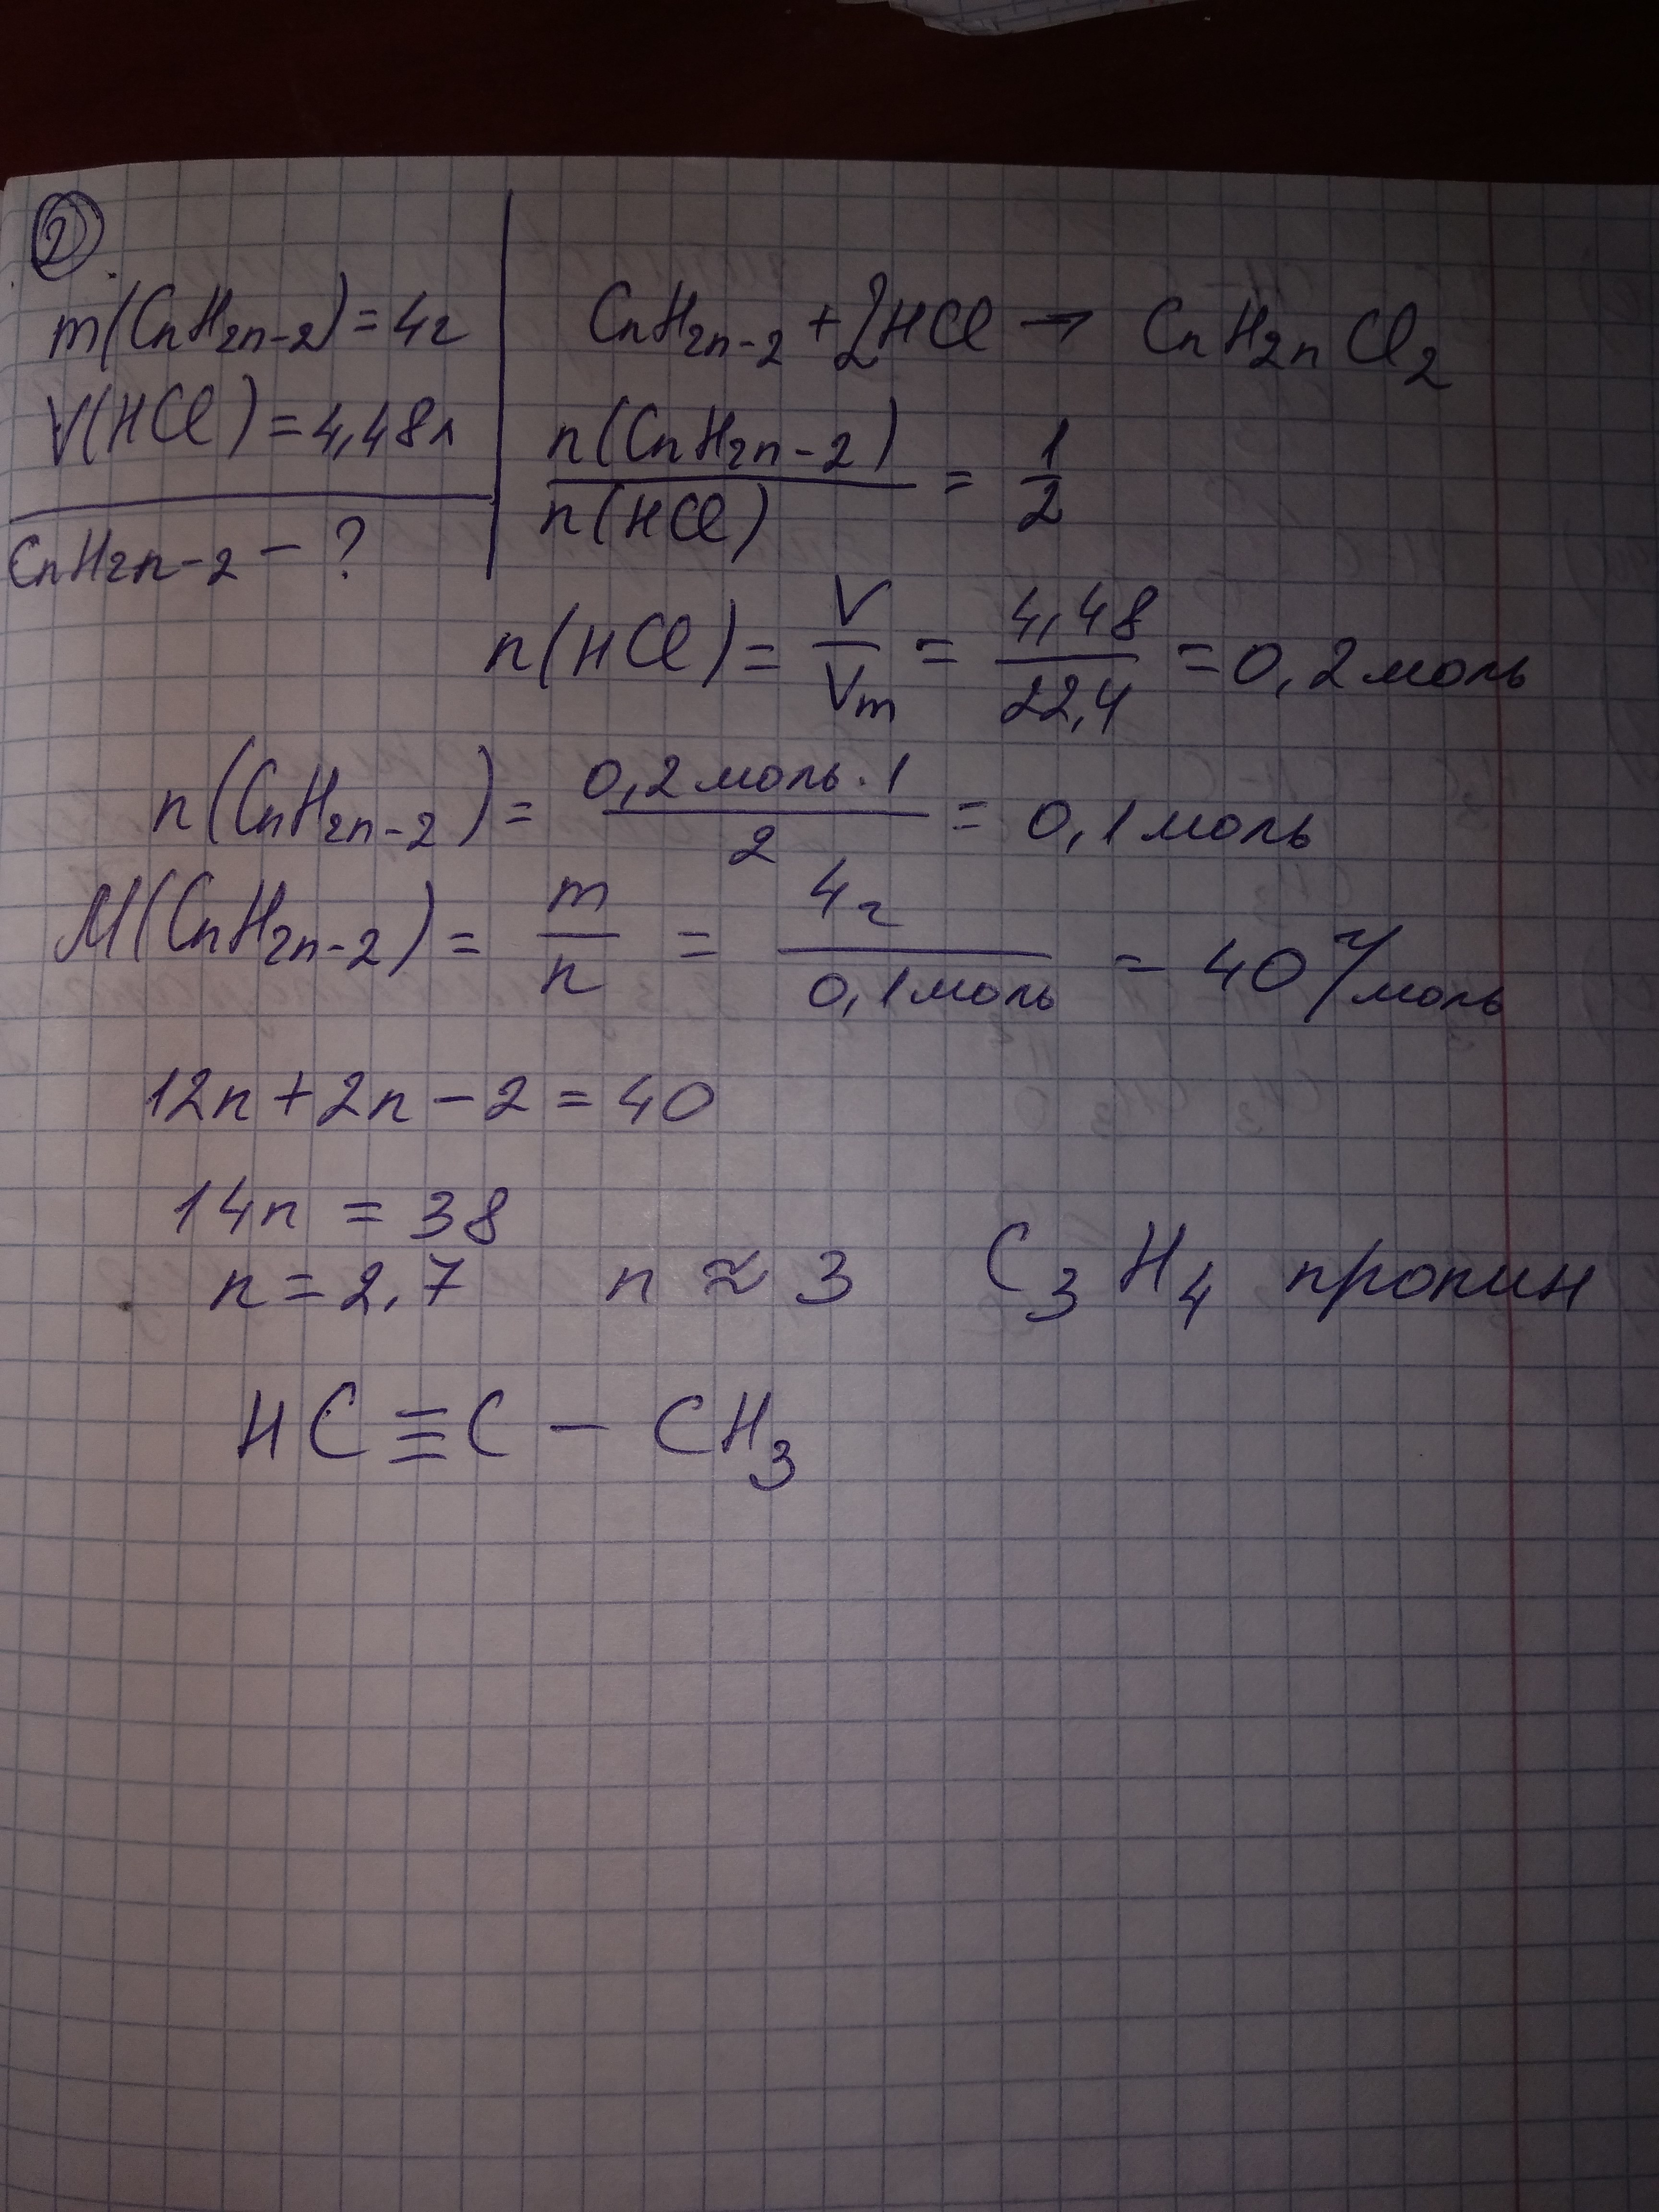 2
m(CnH2n-2)=4г
V(HCl)=4,48л
CnH2n-2 - ?
CnH2n-2 + 2HCl → CnH2nCl2
n(CnH2n-2) / n(HCl) = 1/2
n(HCl) = V/Vm = 4,48/22,4 = 0,2 моль
n(CnH2n-2) = 0,2 моль · 1 / 2 = 0,1 моль
M(CnH2n-2) = m/n = 4г / 0,1 моль = 40 г/моль
12n + 2n - 2 = 40
14n = 38
n = 2,7 n ≈ 3 C3H4 пропин
HC ≡ C - CH3